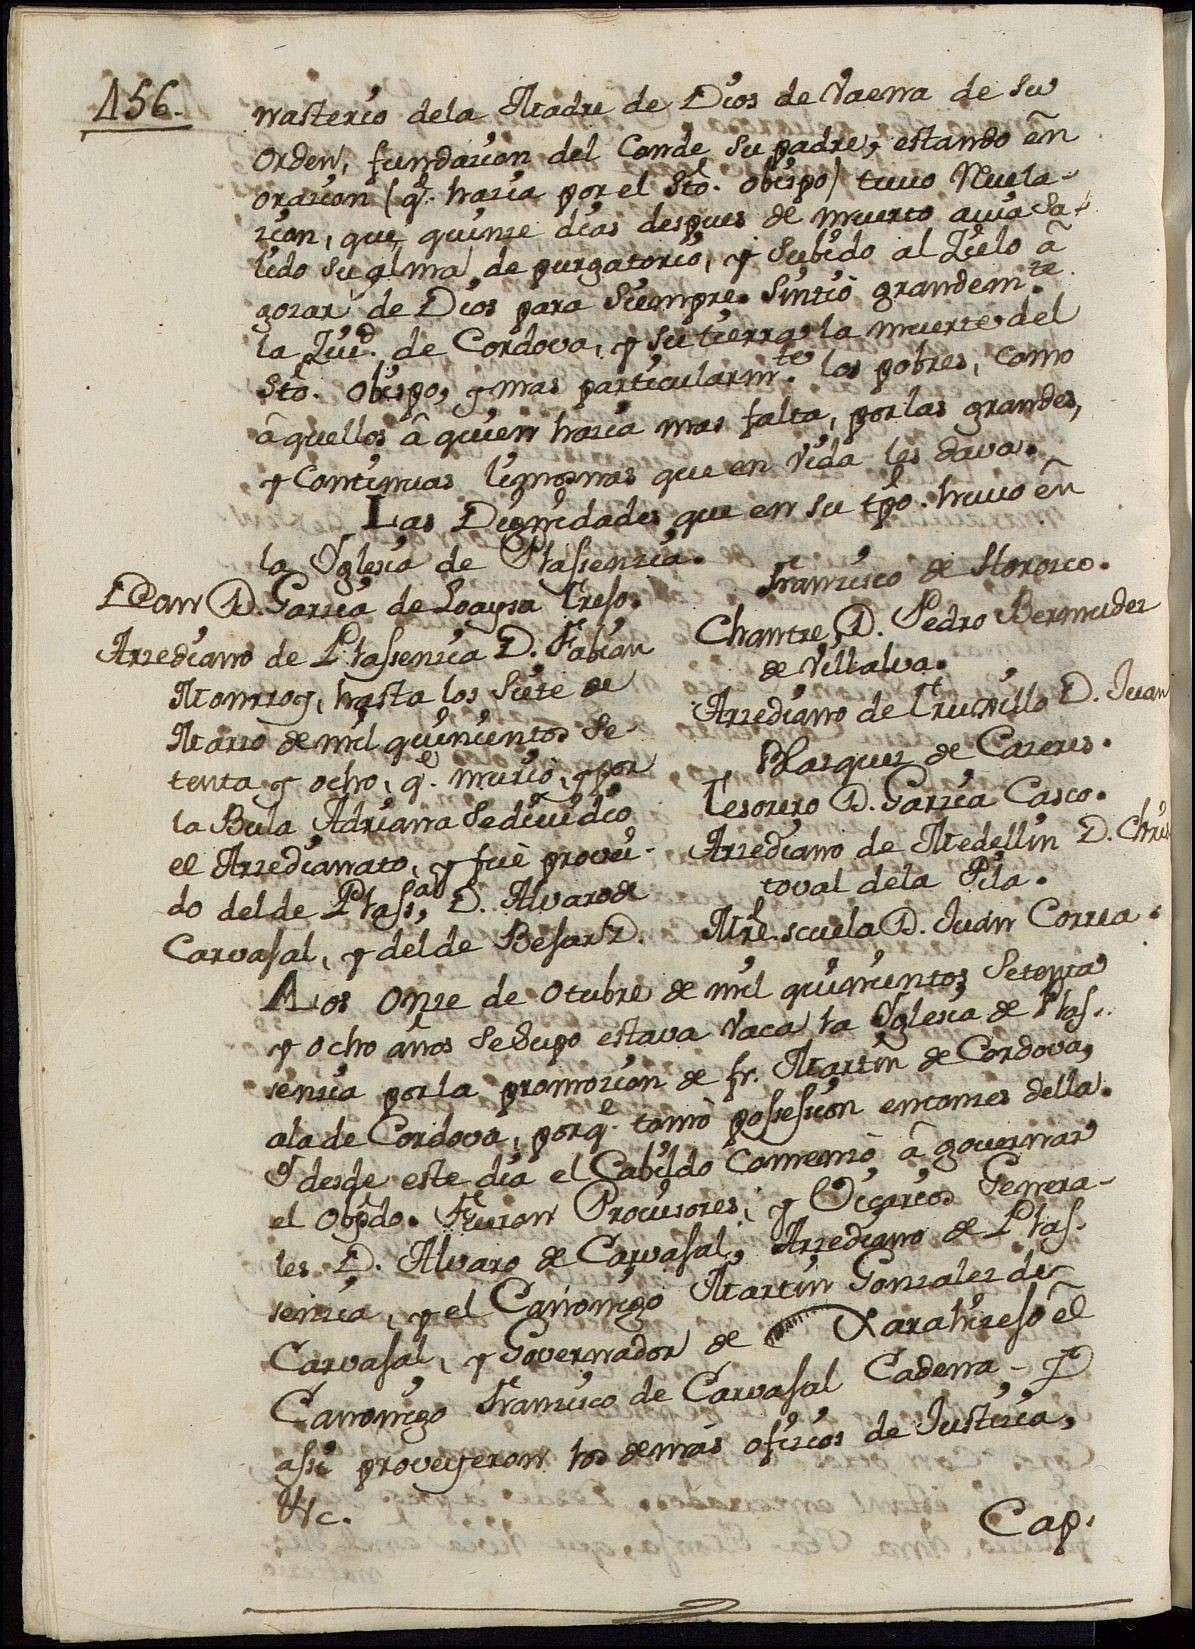 156.
nasterio dela Madre de Dios de Vaena de su
orden, fundacion del Conde su padre, estando ên
oracion (q̃. hacia por el Sto. obispo) tuuo Reuela-
cion, que quinze dias despues de muerto auia sa-
lido su alma de purgatorio, y subido al Zielo â
gozar de Dios para siempre. Sintiò grandem.te
la Ziud. de Cordova, y su tierra la muerte del
Sto. obispo, y mas particularm.te los pobres, como
âquellos â quien hacia mas falta, por las grandes,
y Continuas limosnas que en vida les dava.
Las Dignidades que en su tpo. huuo ên
la Yglesia de Plassenzia.
Dean D. Garzia de Loaysa Treso.
Arzediano de Plassenzia D. Fabian
Monrroy, hasta los Siete de
Marzo de mil quinientos se-
tenta y ocho, q.e muriò, y por
la Bula Adriana se diuidiò
el Arzedianato, y fuè proveì-
do del de Plass.a D. Alvaro de
Carvajal, y del de Bejar D.
Francisco de Horosco.
Chantre, D. Pedro Bermudez
de Villalva.
Arzediano de Truxillo D. Juan
Blazquez de Cazeres.
Tesorero D. Garzia Casco.
Arzediano de Medellin D. Chris
toval dela Pila.
Mre. scuela D. Juan Correa.
A los onze de Otubre de mil quinientos setenta
y ocho años se supo estava Vaca la Yglesia de Plas-
senzia por la promozion de fr. Martin de Cordova,
ala de Cordova, porq.e tomò possession entonzes della.
Y desde este dia el Cabildo Comenzò â governar
el Obpdo. Fueron Provisores, y Vicarios Genera-
les D. Alvaro de Carvajal, Arzediano de Plas-
senzia, y el Canonigo Martin Gonzalez de
Carvajal, y Governador de Xarahizejo êl
Canonigo Francisco de Carvajal Cadena - Y
assi proveyeron los demas ofizios de Justizia,
&c.
Cap.